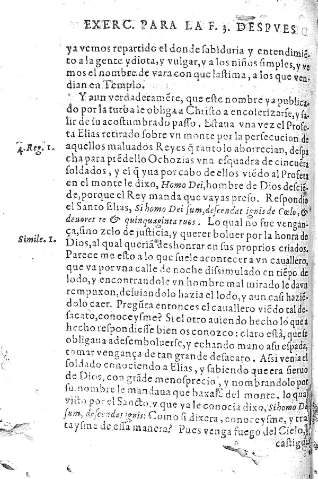 EXERC. PARA LA F. 3. DESPVES
ya vemos repartido el don de sabiduria y entendimiẽ-
to a la gente ydiota, y vulgar, y a los niños simples, y ve
mos el nombre de vara con que lastima, a los que ven-
dian en Templo.
Y aun verdaderamẽte, que este nombre ya publica-
do por la turba le obliga a Christo a encolerizarse, y sa-
lir de su acostumbrado passo. Estaua vna vez el Profe-
ta Elias retirado sobre vn monte por la persecucion de
4. Reg. 1.
aquellos maluados Reyes q̃ tanto lo aborrecian, despa
cha para prẽdello Ochozias vna esquadra de cincuẽta
soldados, y el q̃ yua por cabo de ellos viẽdo al Profeta
en el monte le dixo, Homo Dei, hombre de Dios desciẽ-
de, porque el Rey manda que vayas preso. Respondio
el Santo Elias, Si homo Dei sum, descendat ignis de Cœlo, &
deuoret te & quinquaginta tuos. Lo qual no fue vengan-
ça, sino zelo de justicia, y querer boluer por la honra de
Simile. 1.
Dios, al qual queriã deshonrar en sus propios criados.
Parece me esto a lo que suele acontecer a vn cauallero,
que va por vna calle de noche dissimulado en tiẽpo de
lodo, y encontrandole vn hombre mal mirado le da vn
rempuxon, desuiandolo hazia el lodo, y aun casi haziẽ-
dolo caer. Pregũta entonces el cauallero viẽdo tal de-
sacato, conoceysme? Si el otro auiendo hecho lo que a
hecho respondiesse bien os conozco: claro està, que le
obligaua a desemboluerse, y echando mano a su espada,
tomar vengança de tan grande desacato. Assi venia el
soldado conociendo a Elias, y sabiendo que era sieruo
de Dios, con grãde menosprecio, y nombrandolo por
su nombre le mandaua que baxasse del monte. lo qual
visto por el Sancto, y que ya le conocia dixo, Si homo Dei
sum, descendat ignis: Como si dixera, conoceysme, y tra
taysme de essa manera? Pues venga fuego del Cielo,
castigue